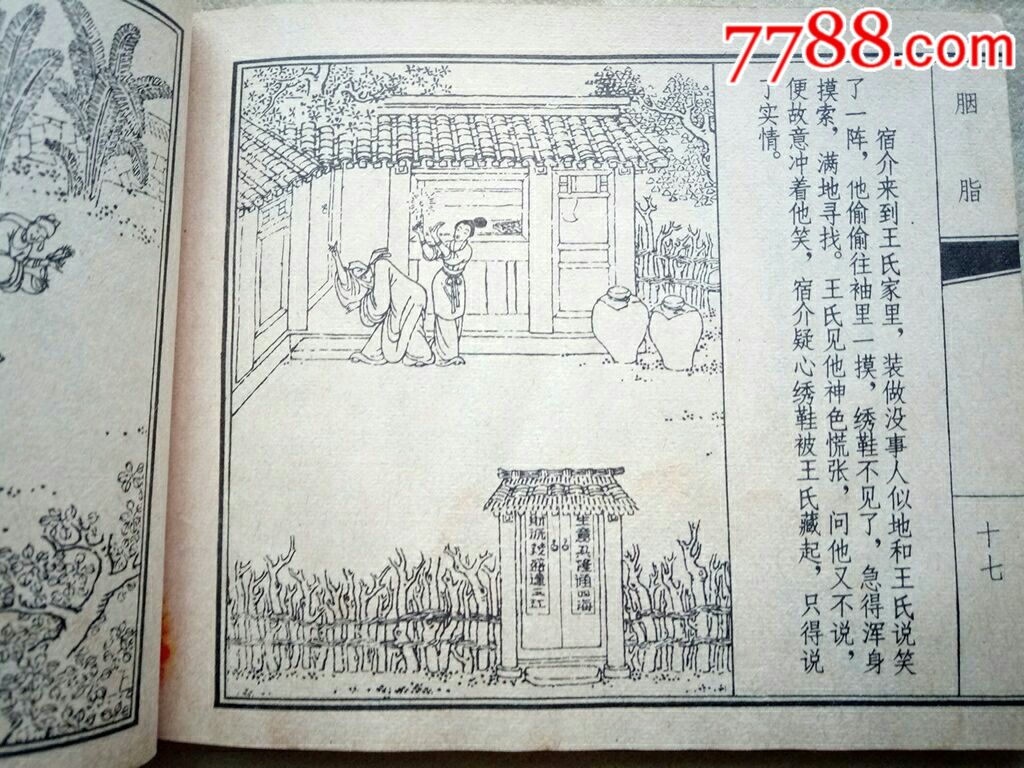 7788.com
胭脂
宿介来到王氏家里，装做没事人似地和王氏说笑
了一阵，他偷偷往袖里一摸，绣鞋不见了，急得浑身
摸索，满地寻找。王氏见他神色慌张，问他又不说，
便故意冲着他笑，宿介疑心绣鞋被王氏藏起，只得说
了实情。
十七
生意兴隆通四海
财源茂盛达三江